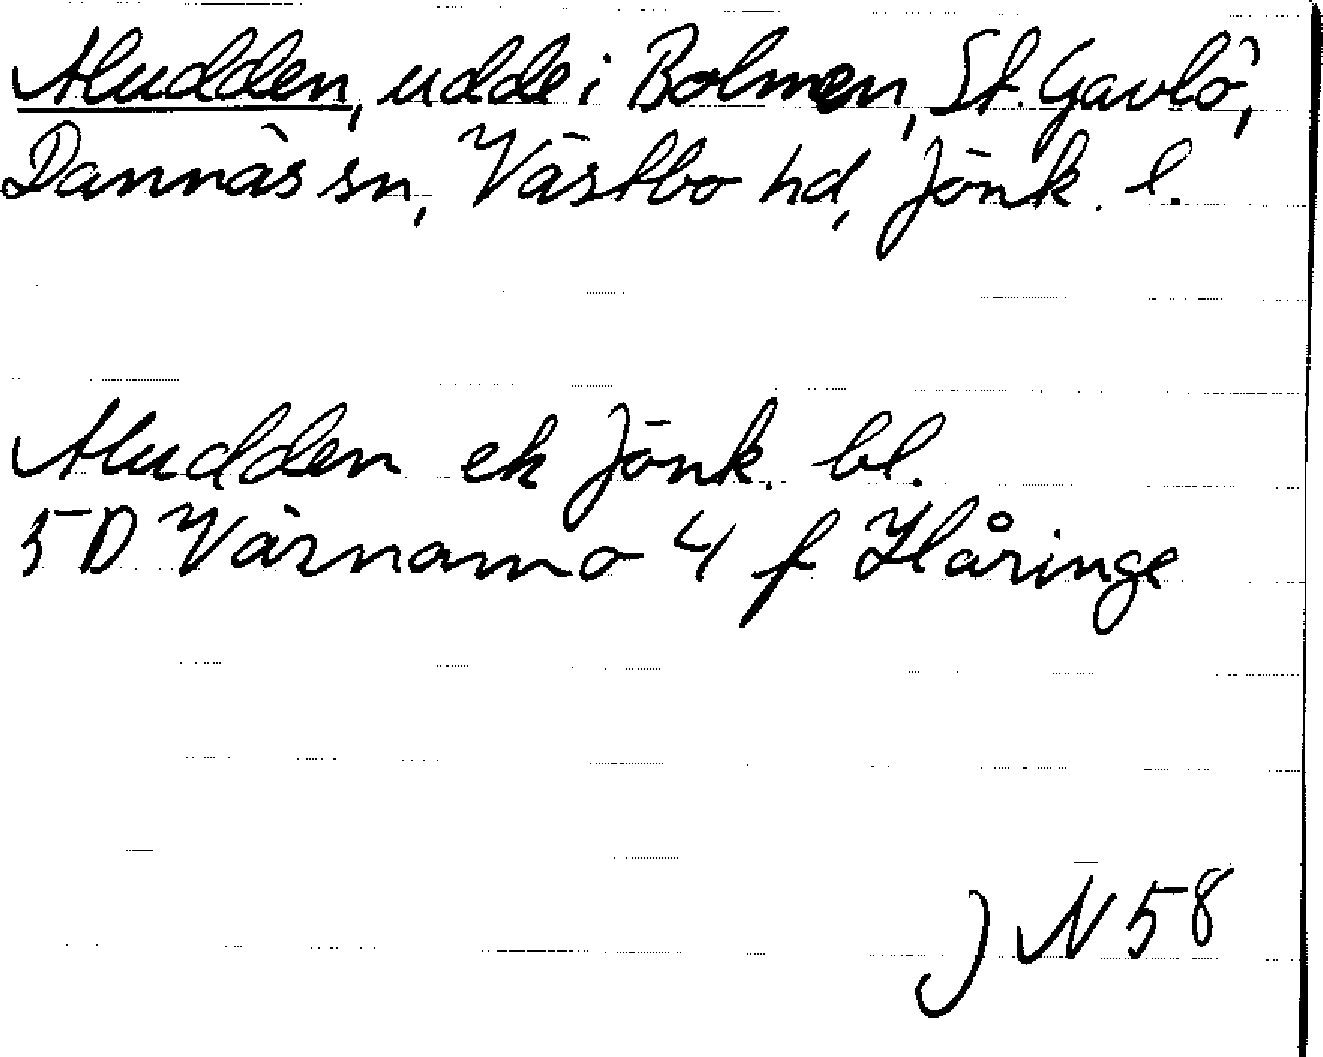 Aludden, udde i Bolmen, St. Gavlö,
Dannäs sn, Västbo hd, Jönk. l.
Aludden ek Jönk. bl.
5D Värnamo 4 f Håringe
J N 58